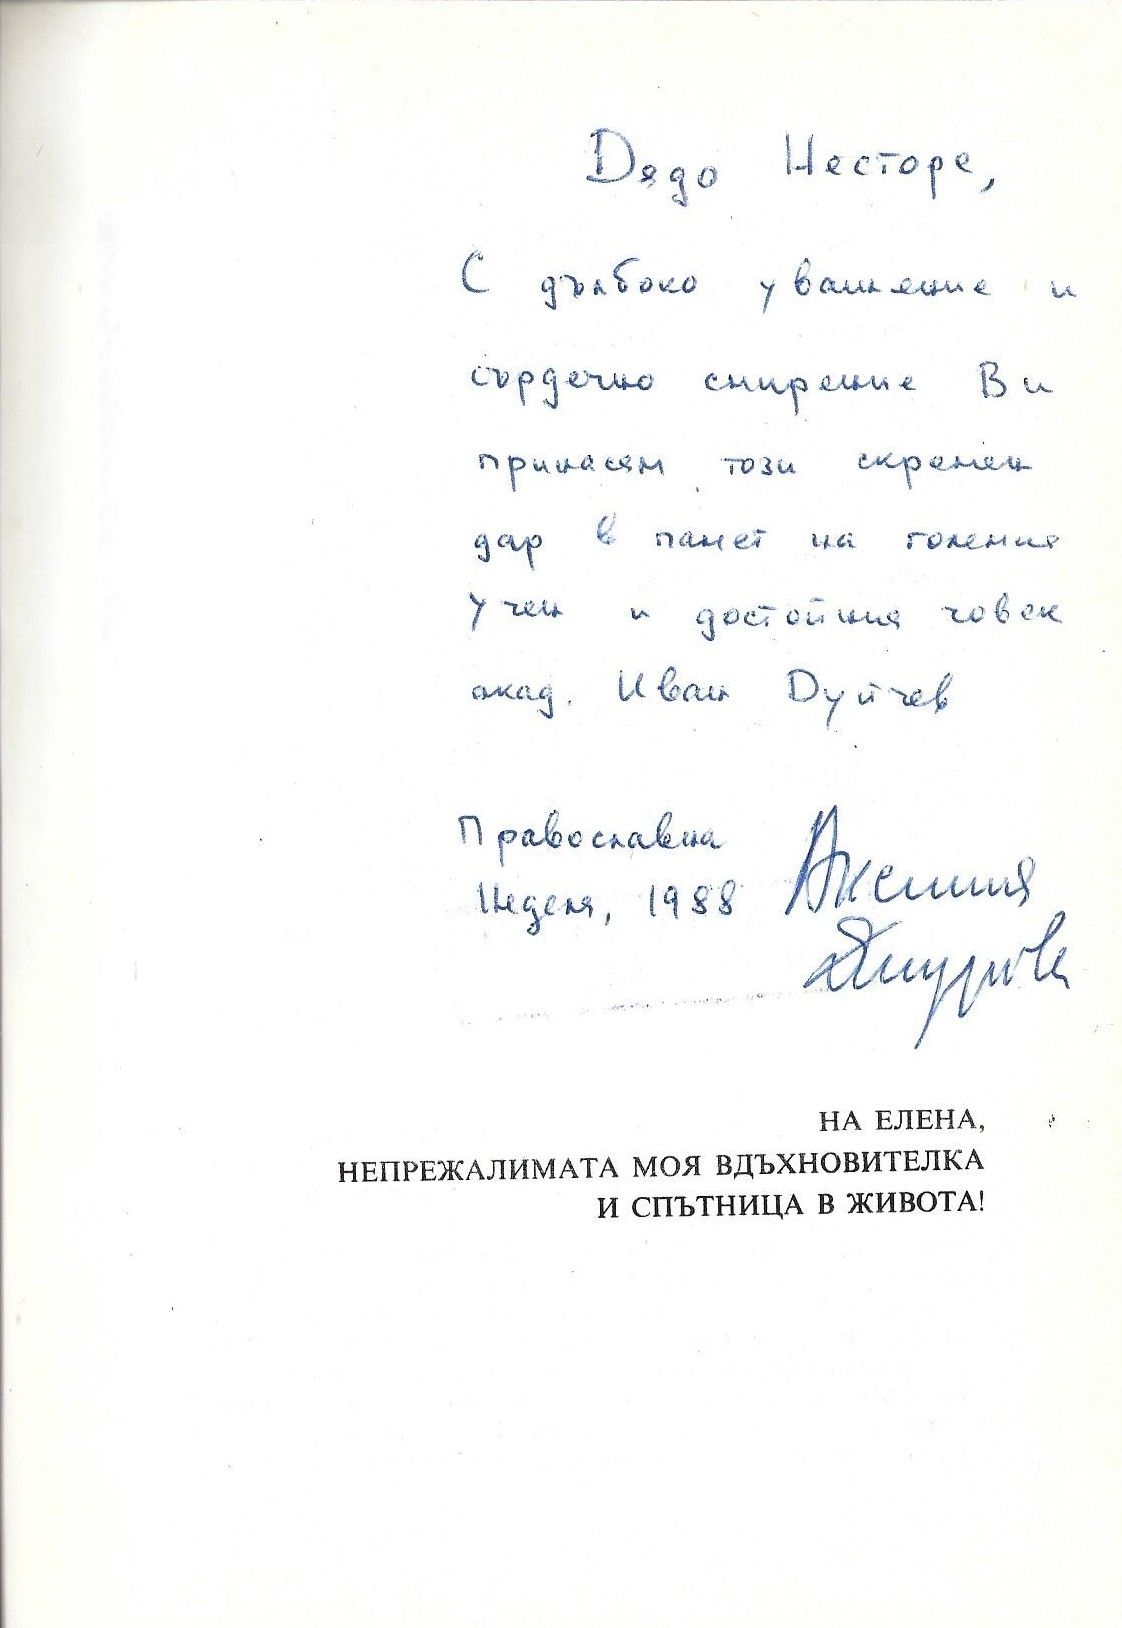 Дядо Несторе,
С дълбоко уважение и
сърдечно смирение Ви
принасям този скромен
дар в памет на големия
учен и достойния човек
акад. Иван Дуйчев
Православна
Неделя, 1988
Аксиния
Джурова
НА ЕЛЕНА,
НЕПРЕЖАЛИМАТА МОЯ ВДЪХНОВИТЕЛКА
И СПЪТНИЦА В ЖИВОТА!